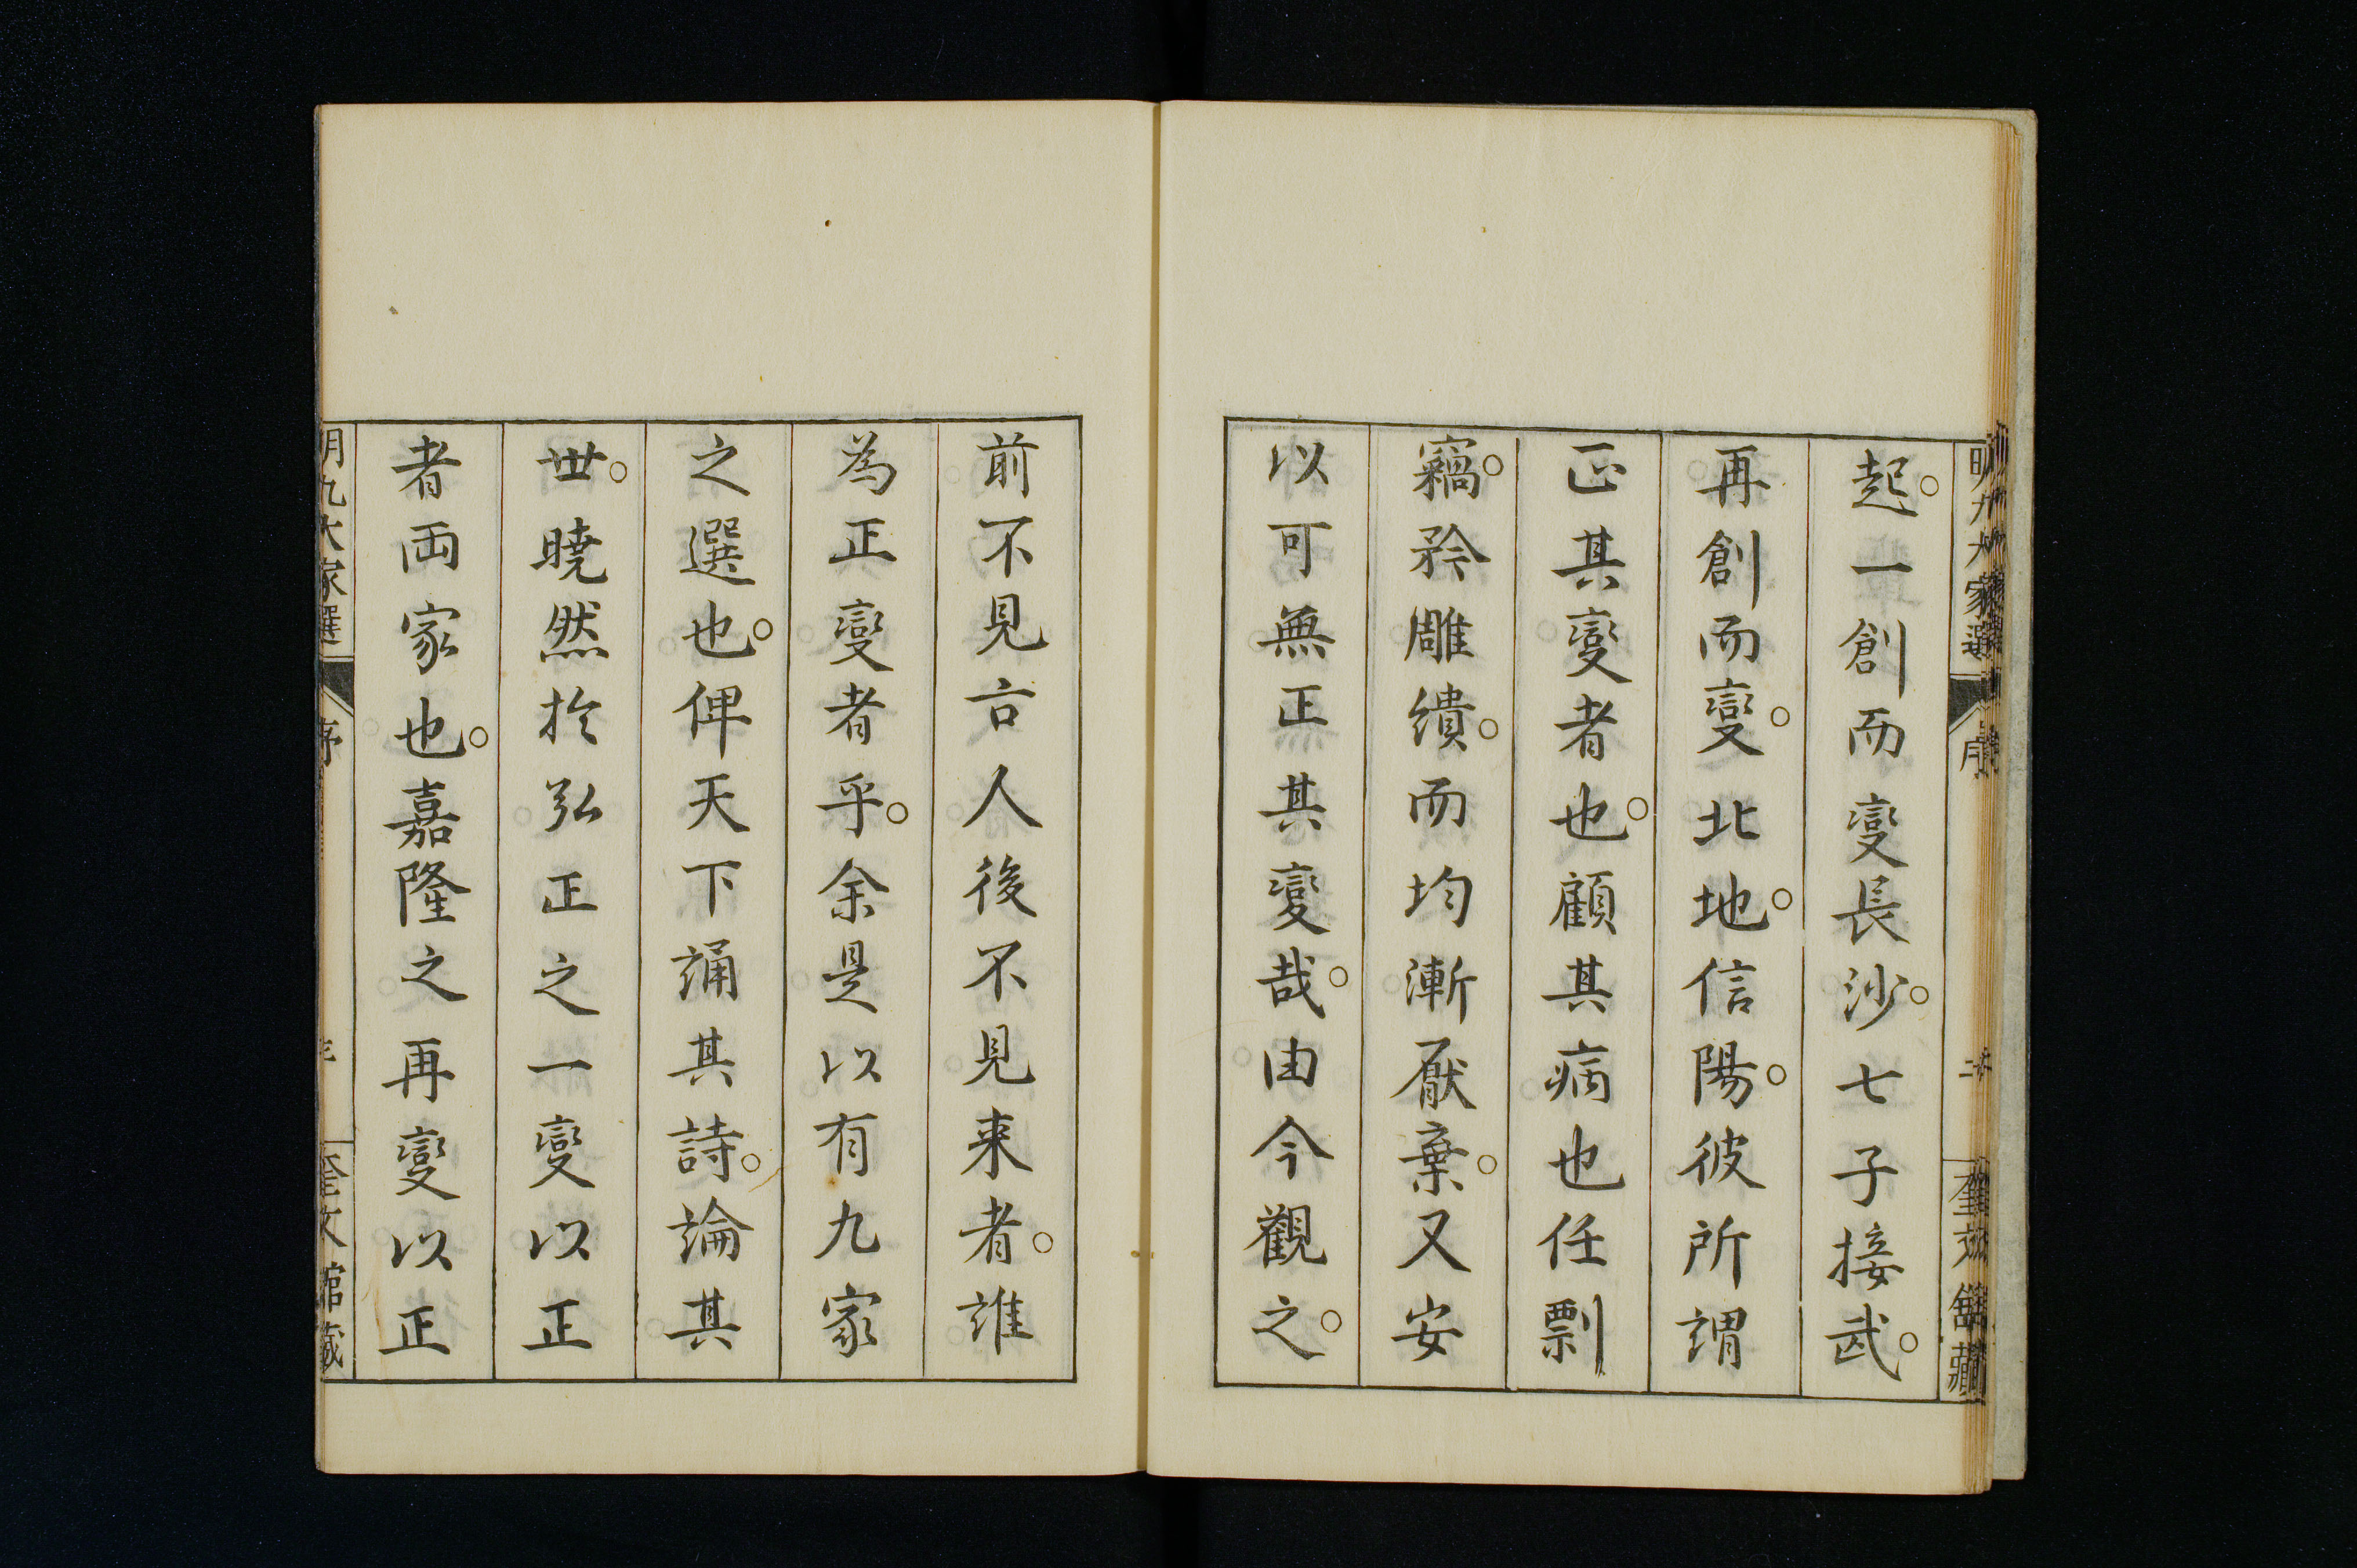 起。一創而變長沙。七子接武。
再創而變。北地。信陽。彼所謂
正其變者也。顧其病也任剽
竊。矜雕繢。而均漸厭棄。又安
以可無正其變哉。由今觀之。
前不見古人後不見来者。誰
為正變者乎。余是以有九家
之選也。俾天下誦其詩。論其
世。曉然於弘正之一變以正
者両家也。嘉隆之再變以正
明九大家選 序
奎文館藏